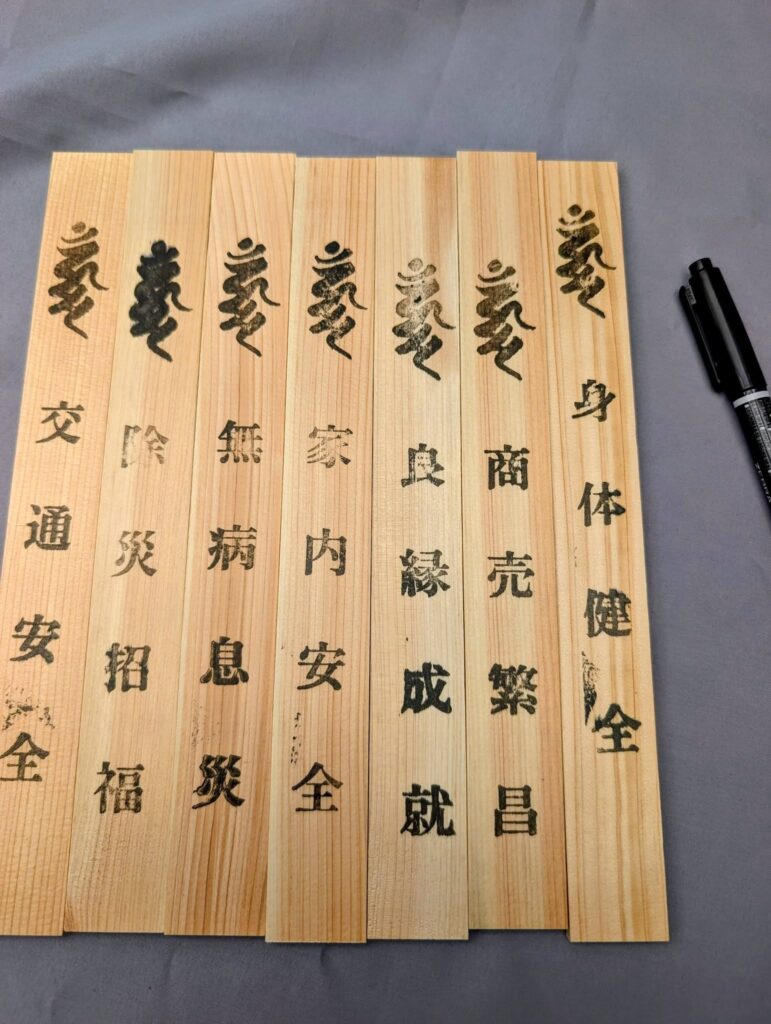 身体健全
商売繁昌
良縁成就
家内安全
無病息災
除災招福
交通安全